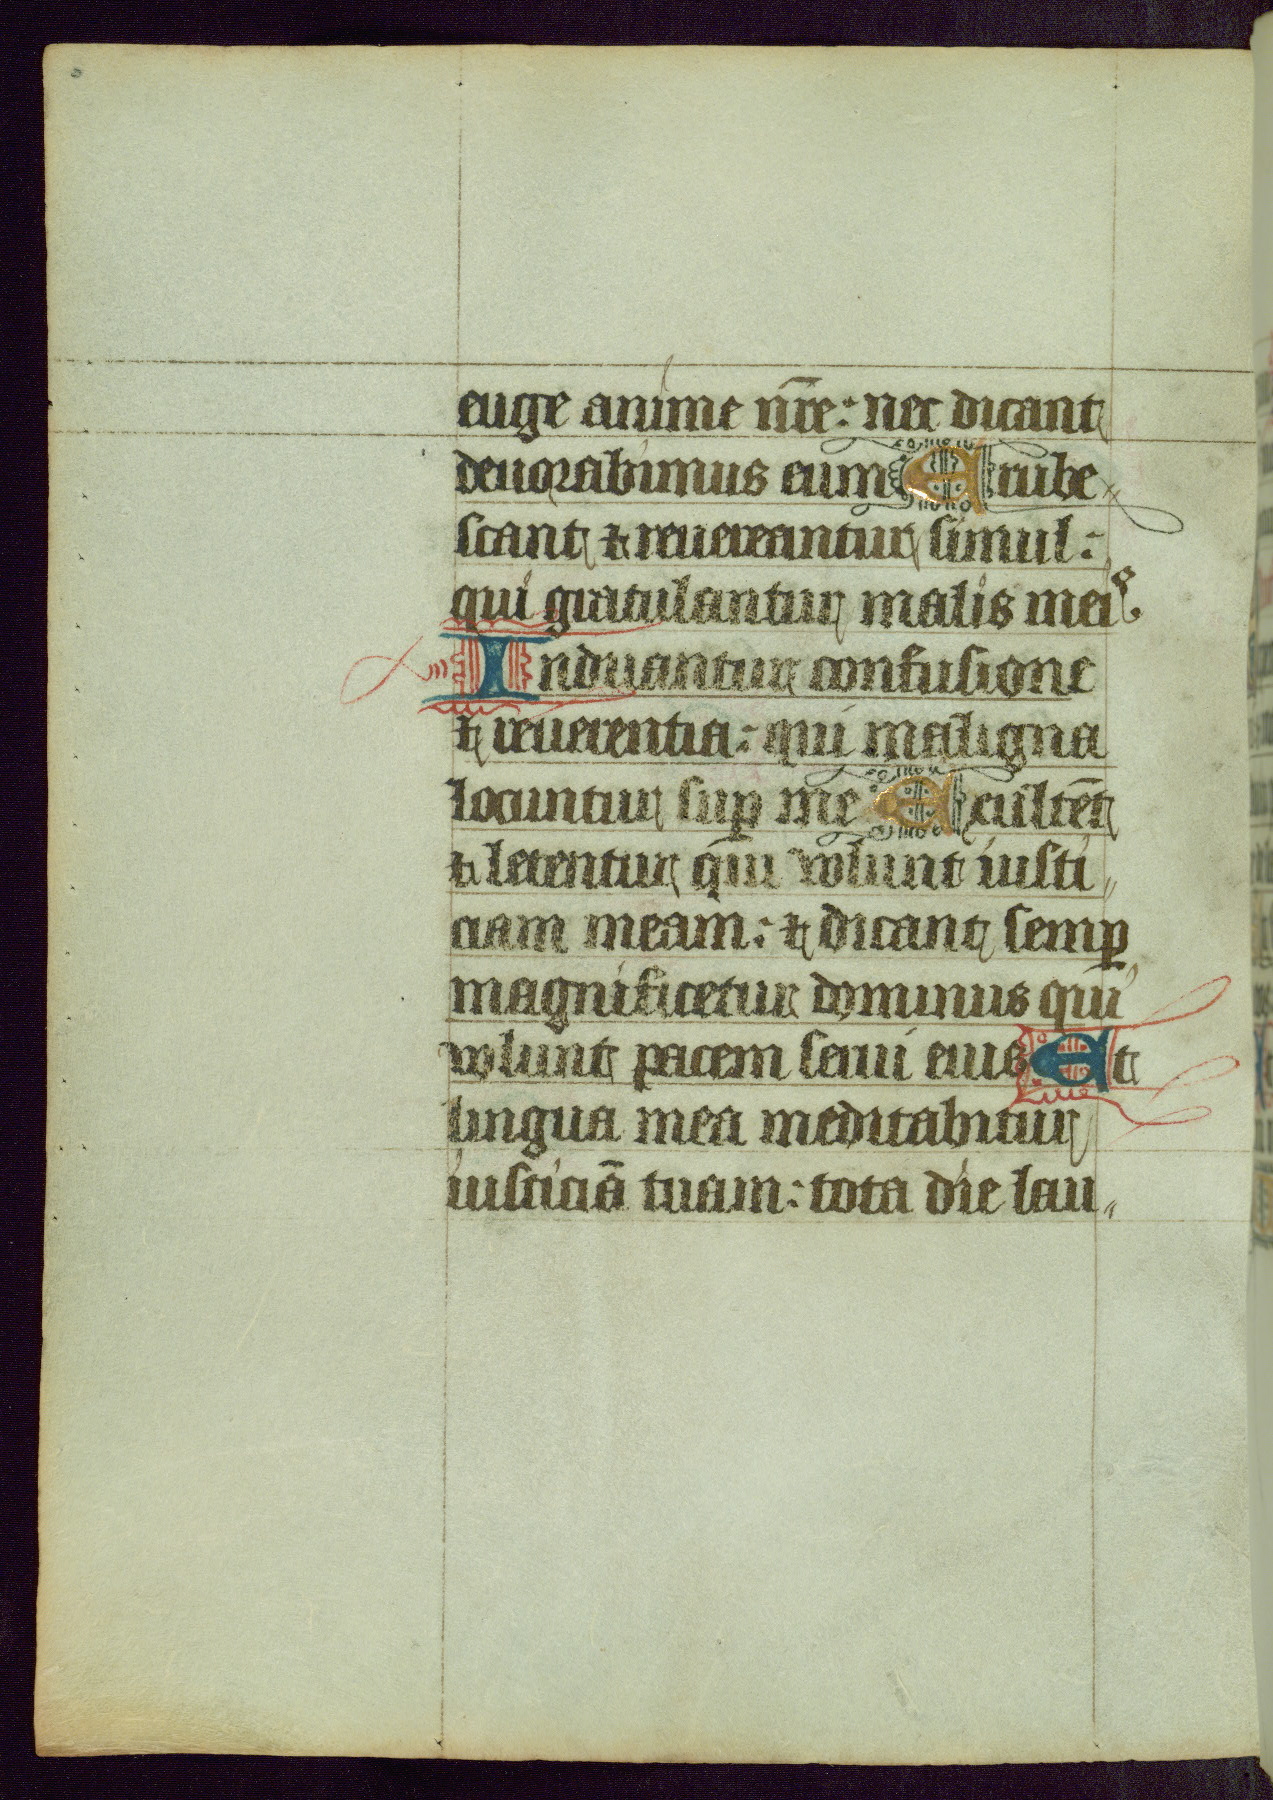 euge anime nr̄e: nec dicant
deuorabimus eum Erube
scant ⁊ reuereantur simul:
qui gratulantur malis meis
Induantur confusione
⁊ reuerentia: qui maligna
locuntur suꝑ me Excultēt
⁊ letentur qui uolunt iusti
ciam meam: ⁊ dicant semꝑ
magnificetur dominus qui
uolunt pacem serui eius Et
lingua mea meditabitur
iusticiā tuam: tota die lau